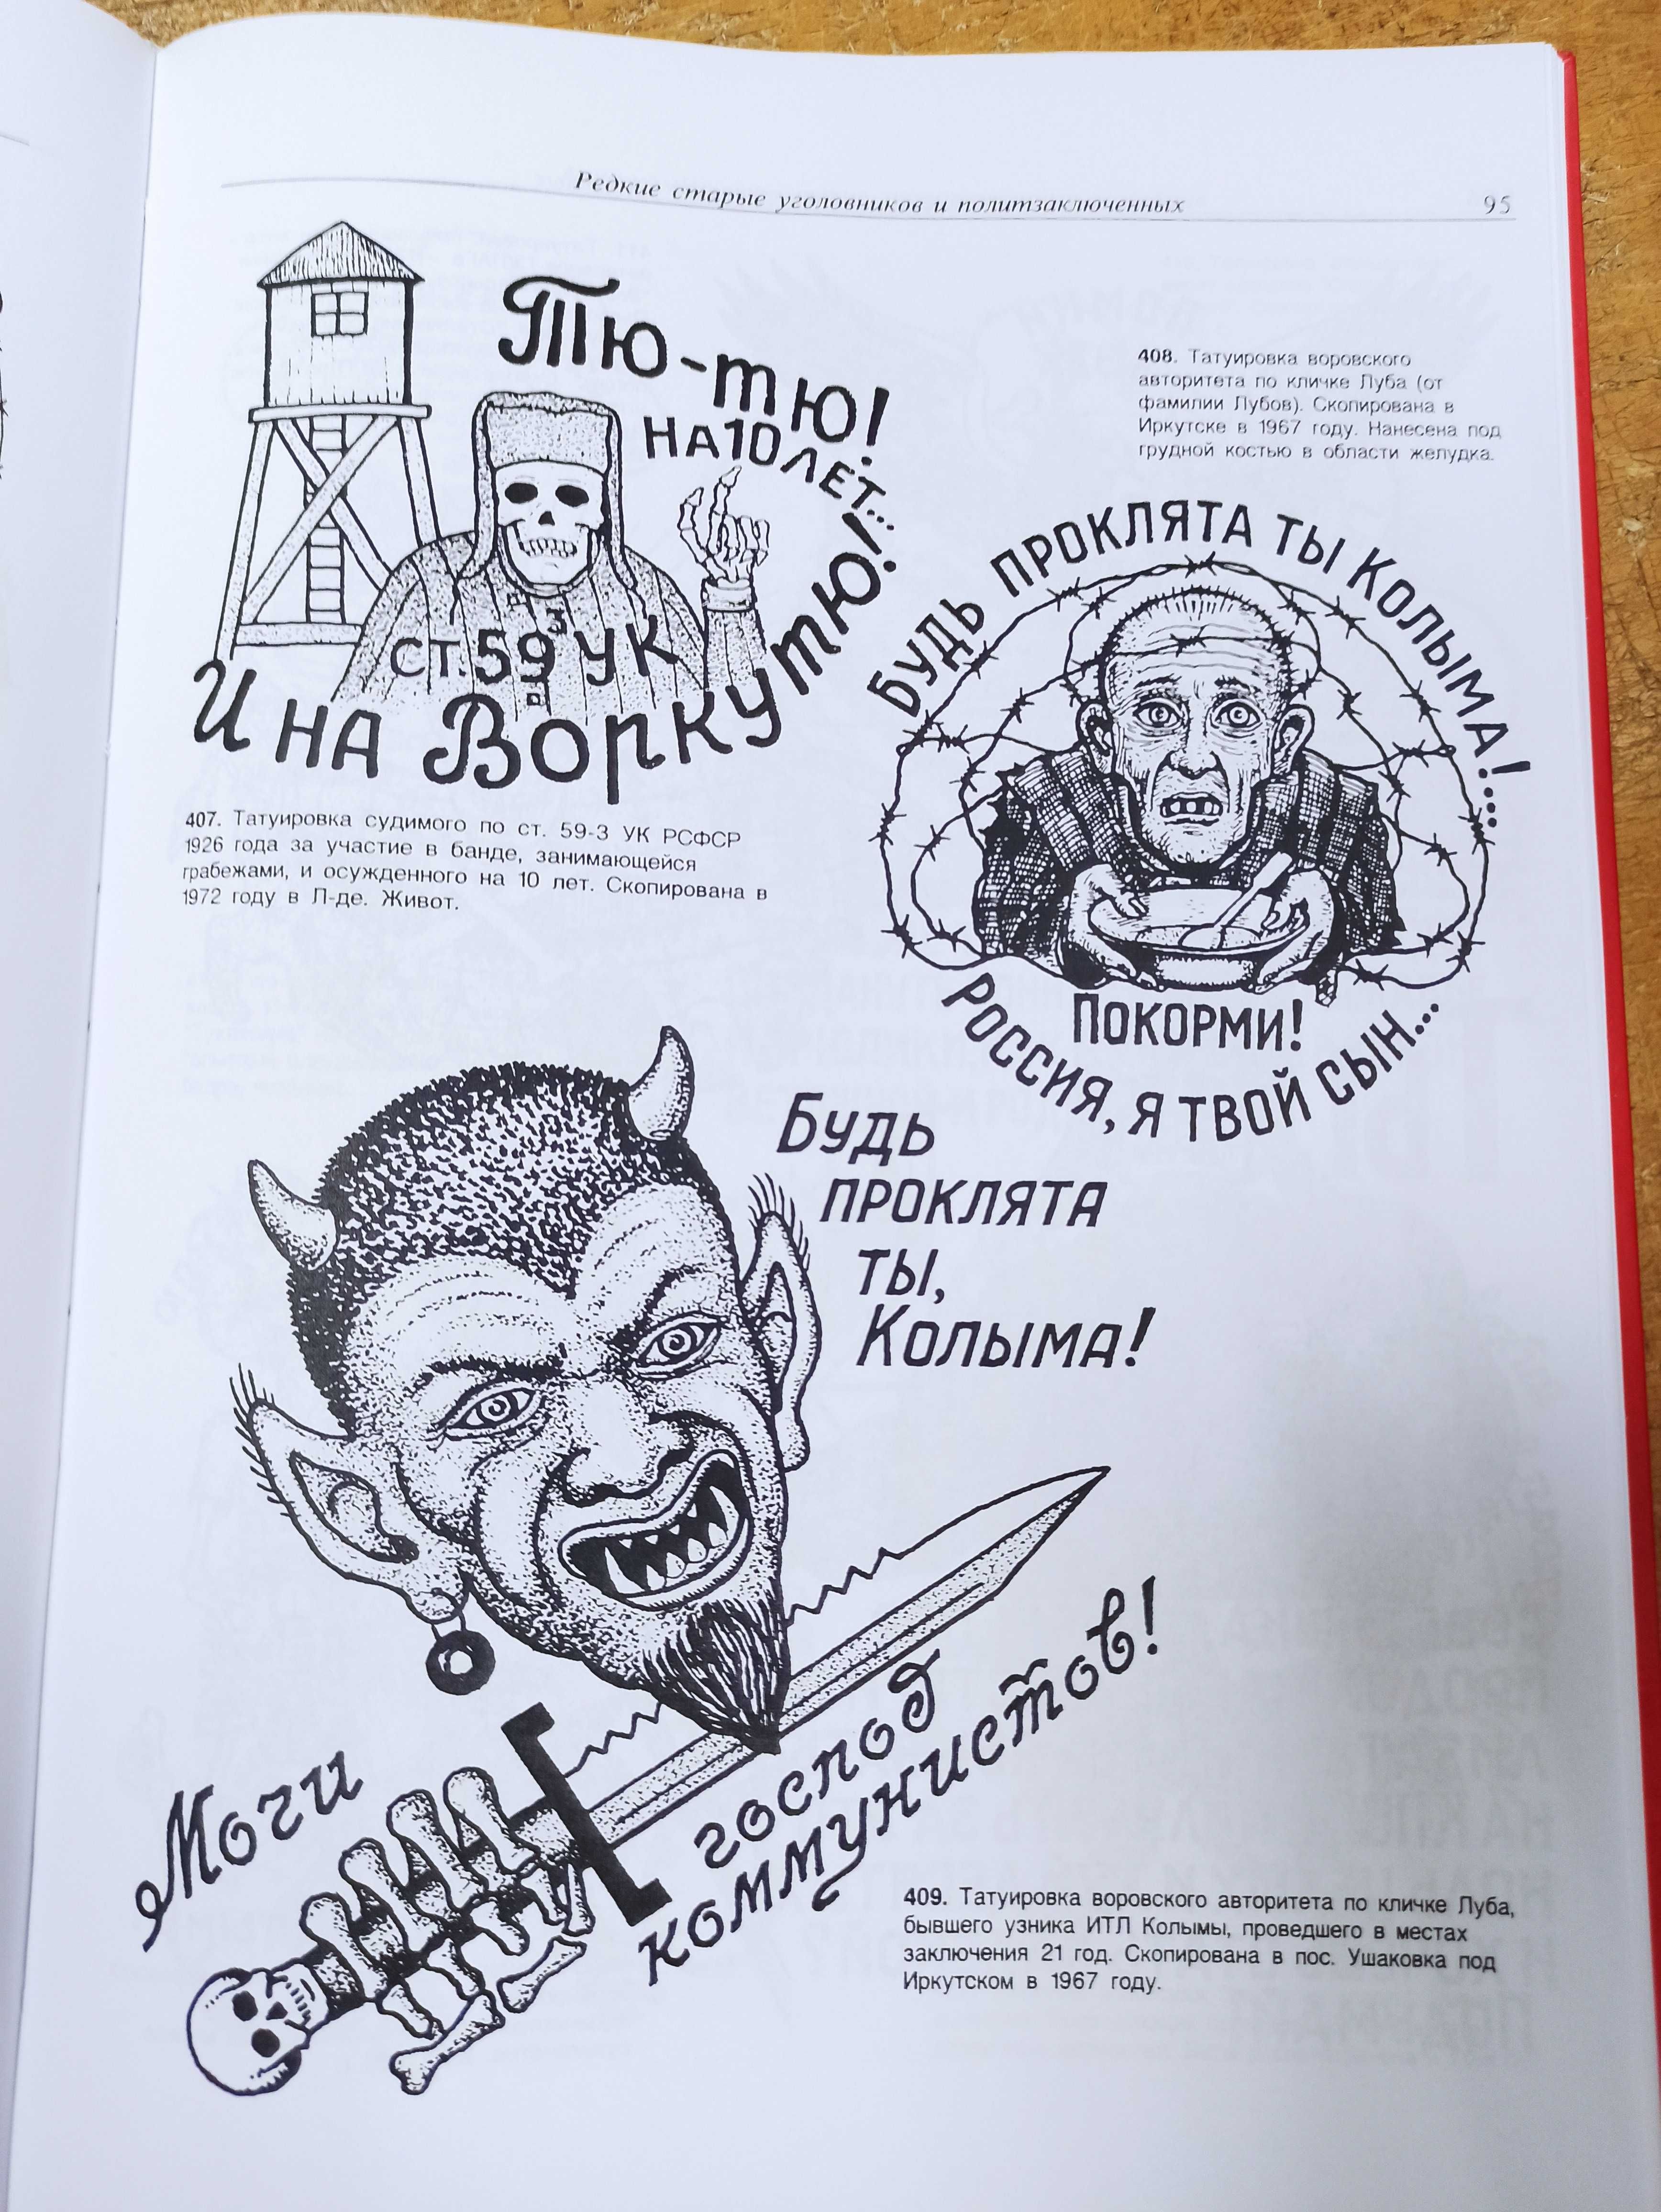 Редкие старые уголовников и политзаключенных
95
Тю-тю!
НА 10 ЛЕТ...
СТ. 59³ УК
И НА ВОРКУТЮ!
407. Татуировка судимого по ст. 59-3 УК РСФСР
1926 года за участие в банде, занимающейся
грабежами, и осужденного на 10 лет. Скопирована в
1972 году в Л-де. Живот.
408. Татуировка воровского
авторитета по кличке Луба (от
фамилии Лубов). Скопирована в
Иркутске в 1967 году. Нанесена под
грудной костью в области желудка.
БУДЬ ПРОКЛЯТА ТЫ КОЛЫМА!...
ПОКОРМИ!
РОССИЯ, Я ТВОЙ СЫН...
БУДЬ
ПРОКЛЯТА
ТЫ,
КОЛЫМА!
Мочи
господ
коммунистов!
409. Татуировка воровского авторитета по кличке Луба,
бывшего узника ИТЛ Колымы, проведшего в местах
заключения 21 год. Скопирована в пос. Ушаковка под
Иркутском в 1967 году.